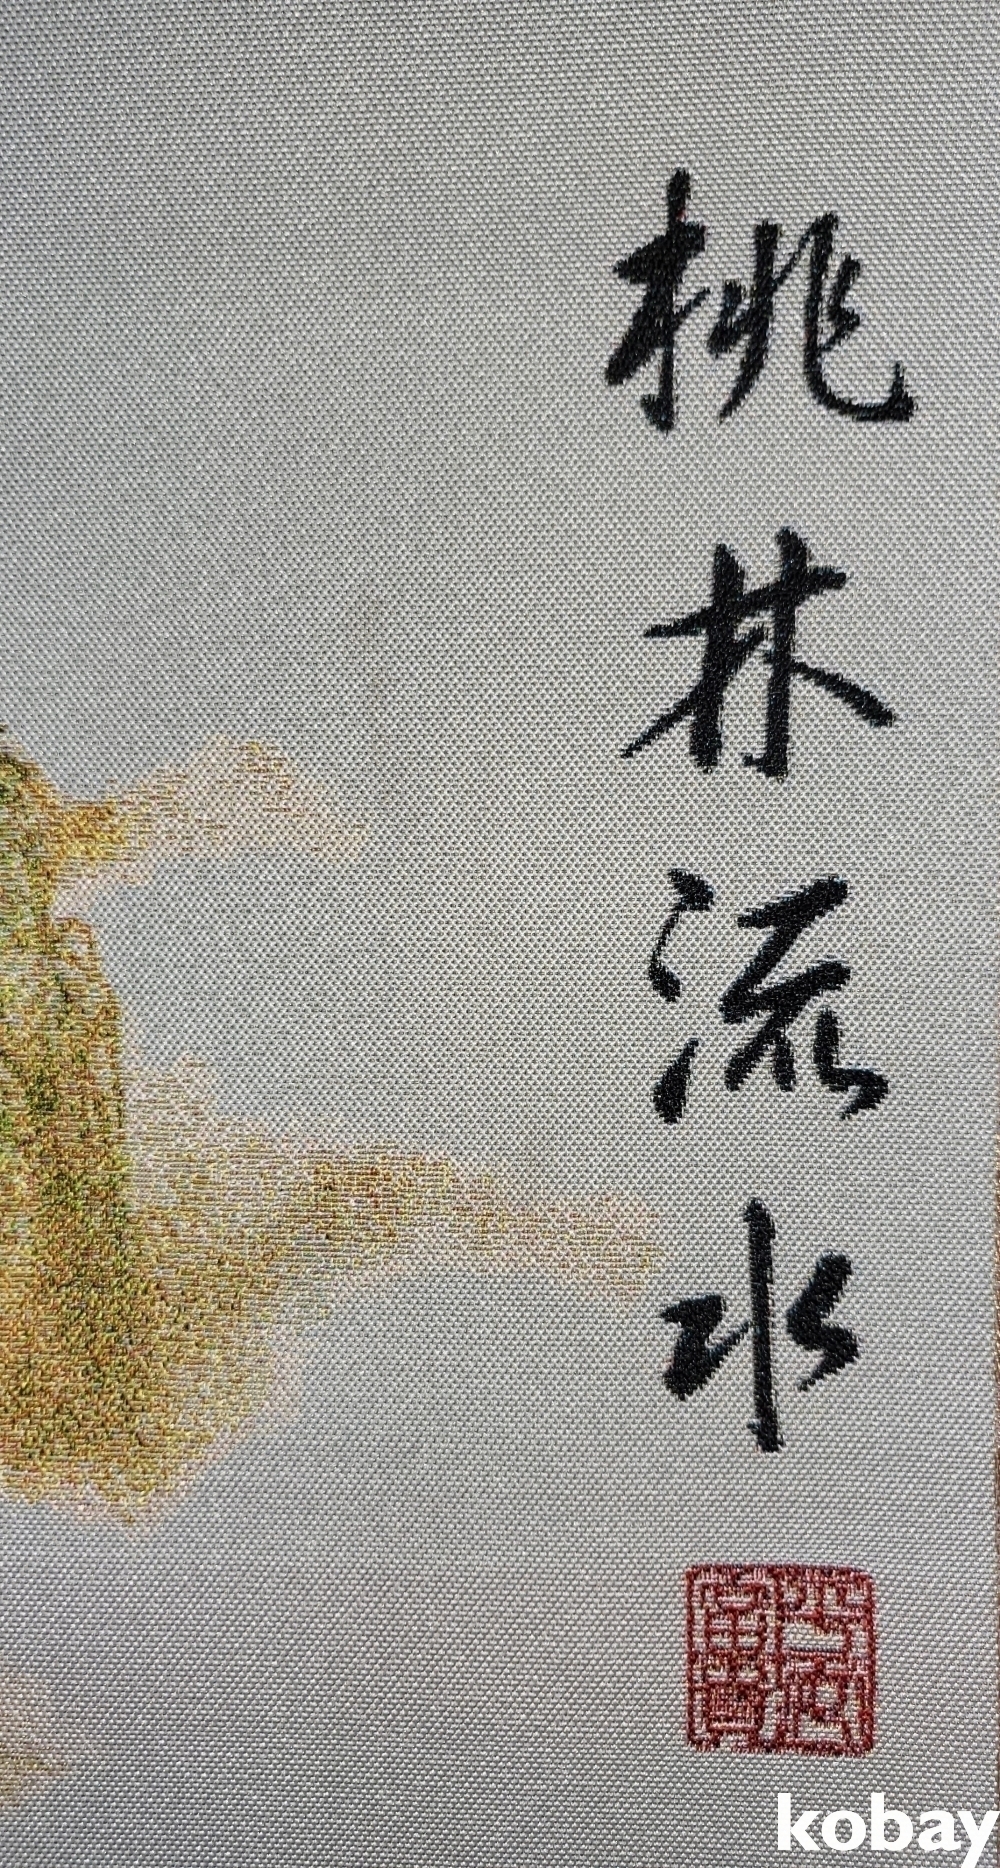 桃林流水
kobay